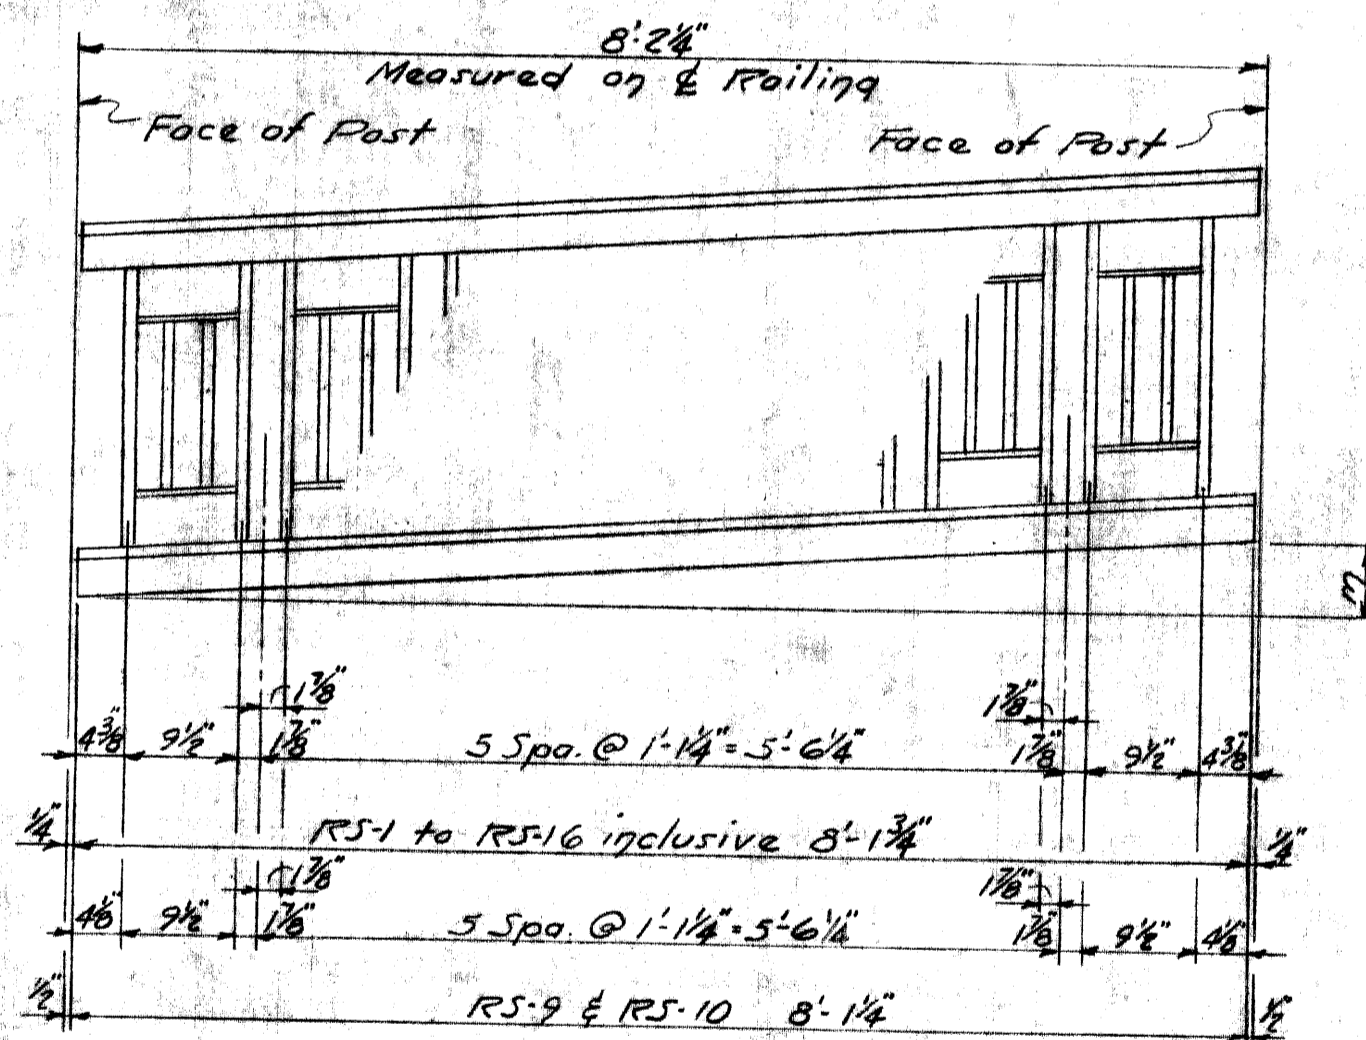 8'-2¼"
Measured on ℄ Railing
Face of Post
Face of Post
1⅞"
1⅞"
4⅜" 9½" 1⅞" 5 Spa. @ 1'-1¼" = 5'-6¼" 1⅞" 9½" 4⅜"
¼" RS-1 to RS-16 inclusive 8'-1¾" ¼"
1⅞"
1⅞"
4⅛" 9½" 1⅞" 5 Spa. @ 1'-1¼" = 5'-6¼" 1⅞" 9½" 4⅛"
½" RS-9 & RS-10 8'-1¼" ½"